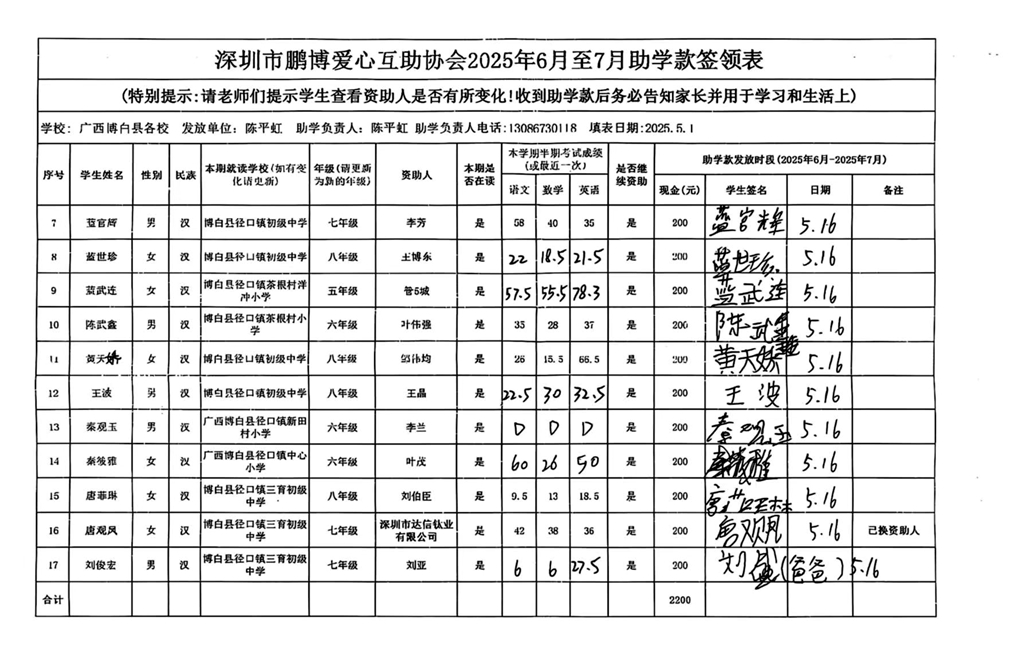 深圳市鹏博爱心互助协会2025年6月至7月助学款签领表
(特别提示:请老师们提示学生查看资助人是否有所变化!收到助学款后务必告知家长并用于学习和生活上)
学校: 广西博白县各校 发放单位: 陈平虹 助学负责人: 陈平虹 助学负责人电话:13086730118 填表日期:2025.5.1
序号 学生姓名 性别 民族 本期就读学校(如有变化请更新) 年级(请更新为新的年级) 资助人 本期是否在读 本学期半期考试成绩(或最近一次) 是否继续资助 助学款发放时段(2025年6月-2025年7月)
语文 数学 英语 现金(元) 学生签名 日期 备注
7 蓝官辉 男 汉 博白县径口镇初级中学 七年级 李芳 是 58 40 35 是 200 蓝官辉 5.16
8 蓝世珍 女 汉 博白县径口镇初级中学 八年级 王博东 是 22 18.5 21.5 是 200 蓝世珍 5.16
9 蓝武连 女 汉 博白县径口镇茶根村洋冲小学 五年级 管 城 是 57.5 55.5 78.3 是 200 蓝武连 5.16
10 陈武鑫 男 汉 博白县径口镇茶根村小学 六年级 叶伟强 是 35 28 37 是 200 陈武鑫 5.16
11 黄天娇 女 汉 博白县径口镇初级中学 八年级 郭伟均 是 26 15.5 66.5 是 200 黄天娇 5.16
12 王波 男 汉 博白县径口镇初级中学 八年级 王晶 是 22.5 30 32.5 是 200 王波 5.16
13 秦观玉 男 汉 广西博白县径口镇新田村小学 六年级 李兰 是 D D D 是 200 秦观玉 5.16
14 秦筱雅 女 汉 广西博白县径口镇中心小学 六年级 叶茂 是 60 26 50 是 200 5.16
15 唐菲琳 女 汉 博白县径口镇三育初级中学 八年级 刘伯臣 是 9.5 13 18.5 是 200 唐菲琳 5.16
16 唐观凤 女 汉 博白县径口镇三育初级中学 七年级 深圳市达信钛业有限公司 是 42 38 36 是 200 唐观凤 5.16 已换资助人
17 刘俊宏 男 汉 博白县径口镇三育初级中学 七年级 刘亚 是 6 6 27.5 是 200 刘盛(爸爸) 5.16
合计 2200